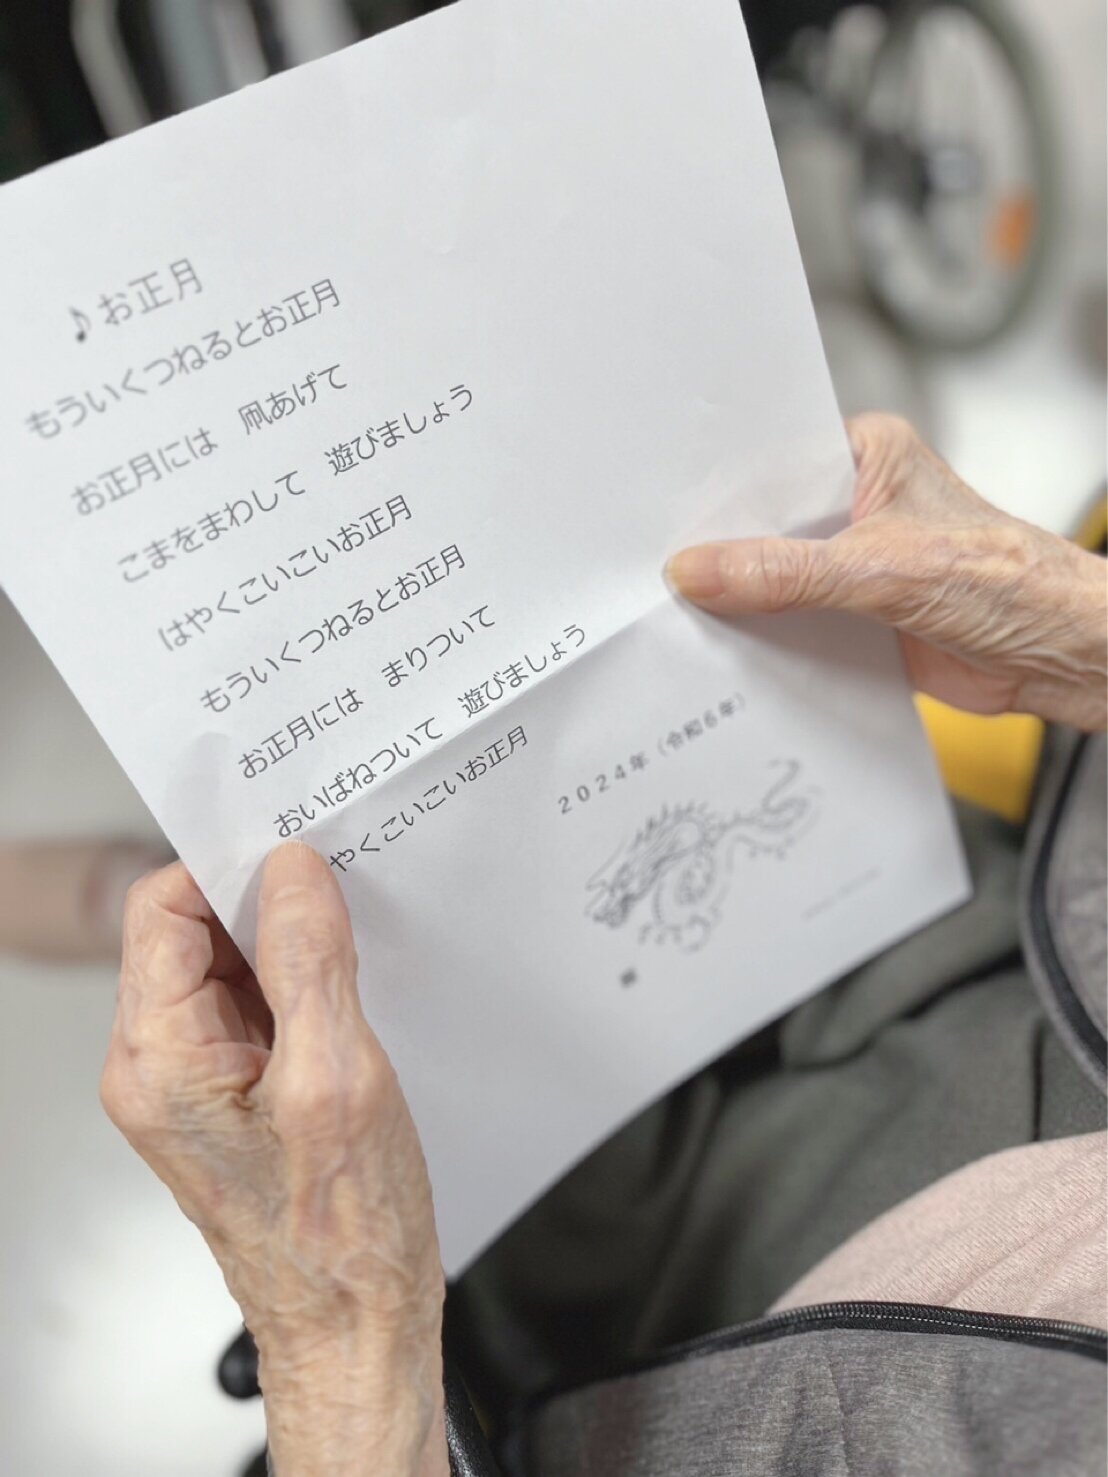 ♪お正月
もういくつねるとお正月
お正月には　凧あげて
こまをまわして　遊びましょう
はやくこいこいお正月
もういくつねるとお正月
お正月には　まりついて
おいばねついて　遊びましょう
やくこいこいお正月
2024年（令和6年）